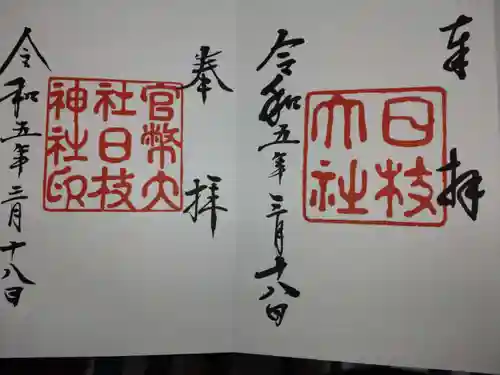 奉拝
日枝大社
令和五年三月十八日
奉拝
官幣大社日枝神社印
令和五年三月十八日